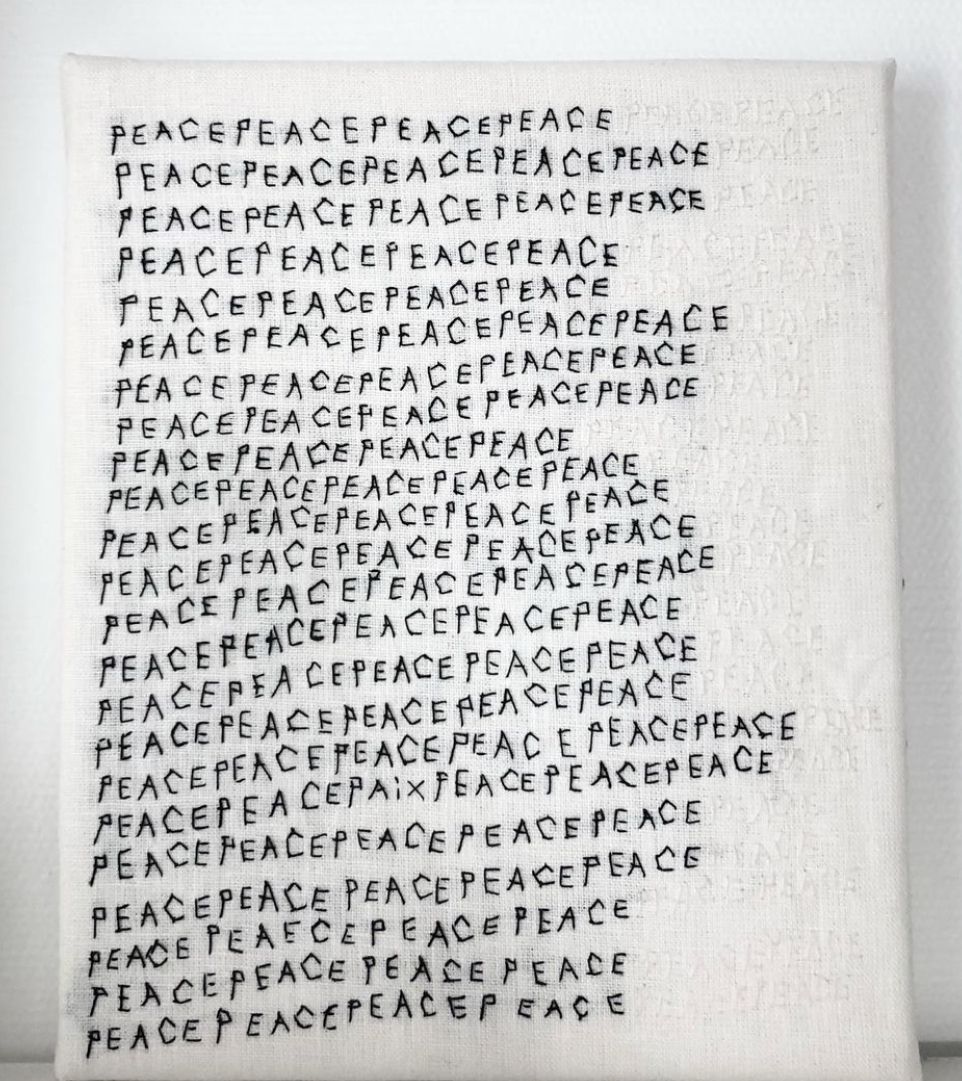 PEACEPEACEPEACEPEACE
PEACEPEACEPEACEPEACEPEACE
PEACE PEACE PEACE PEACEPEACE
PEACEPEACEPEACEPEACE
PEACEPEACEPEACEPEACE
PEACEPEACEPEACEPEACEPEACE
PEACE PEACEPEACEPEACEPEACE
PEACEPEACEPEACE PEACEPEACE
PEACE PEACEPEACEPEACE
PEACEPEACEPEACEPEACEPEACE
PEACEPEACEPEACEPEACEPEACE
PEACEPEACEPEACE PEACEPEACE
PEACE PEACEPEACEPEACEPEACE
PEACEPEACEPEACEPEACEPEACE
PEACEPEACEPEACE PEACEPEACE
PEACEPEACEPEACEPEACEPEACE
PEACEPEACEPEACEPEAC E PEACEPEACE
PEACEPEACEPAiXPEACEPEACEPEACE
PEACEPEACEPEACE PEACEPEACE
PEACEPEACE PEACEPEACEPEACE
PEACE PEAECE PEACE PEACE
PEACEPEACE PEACE PEACE
PEACE PEACEPEACEP EACE